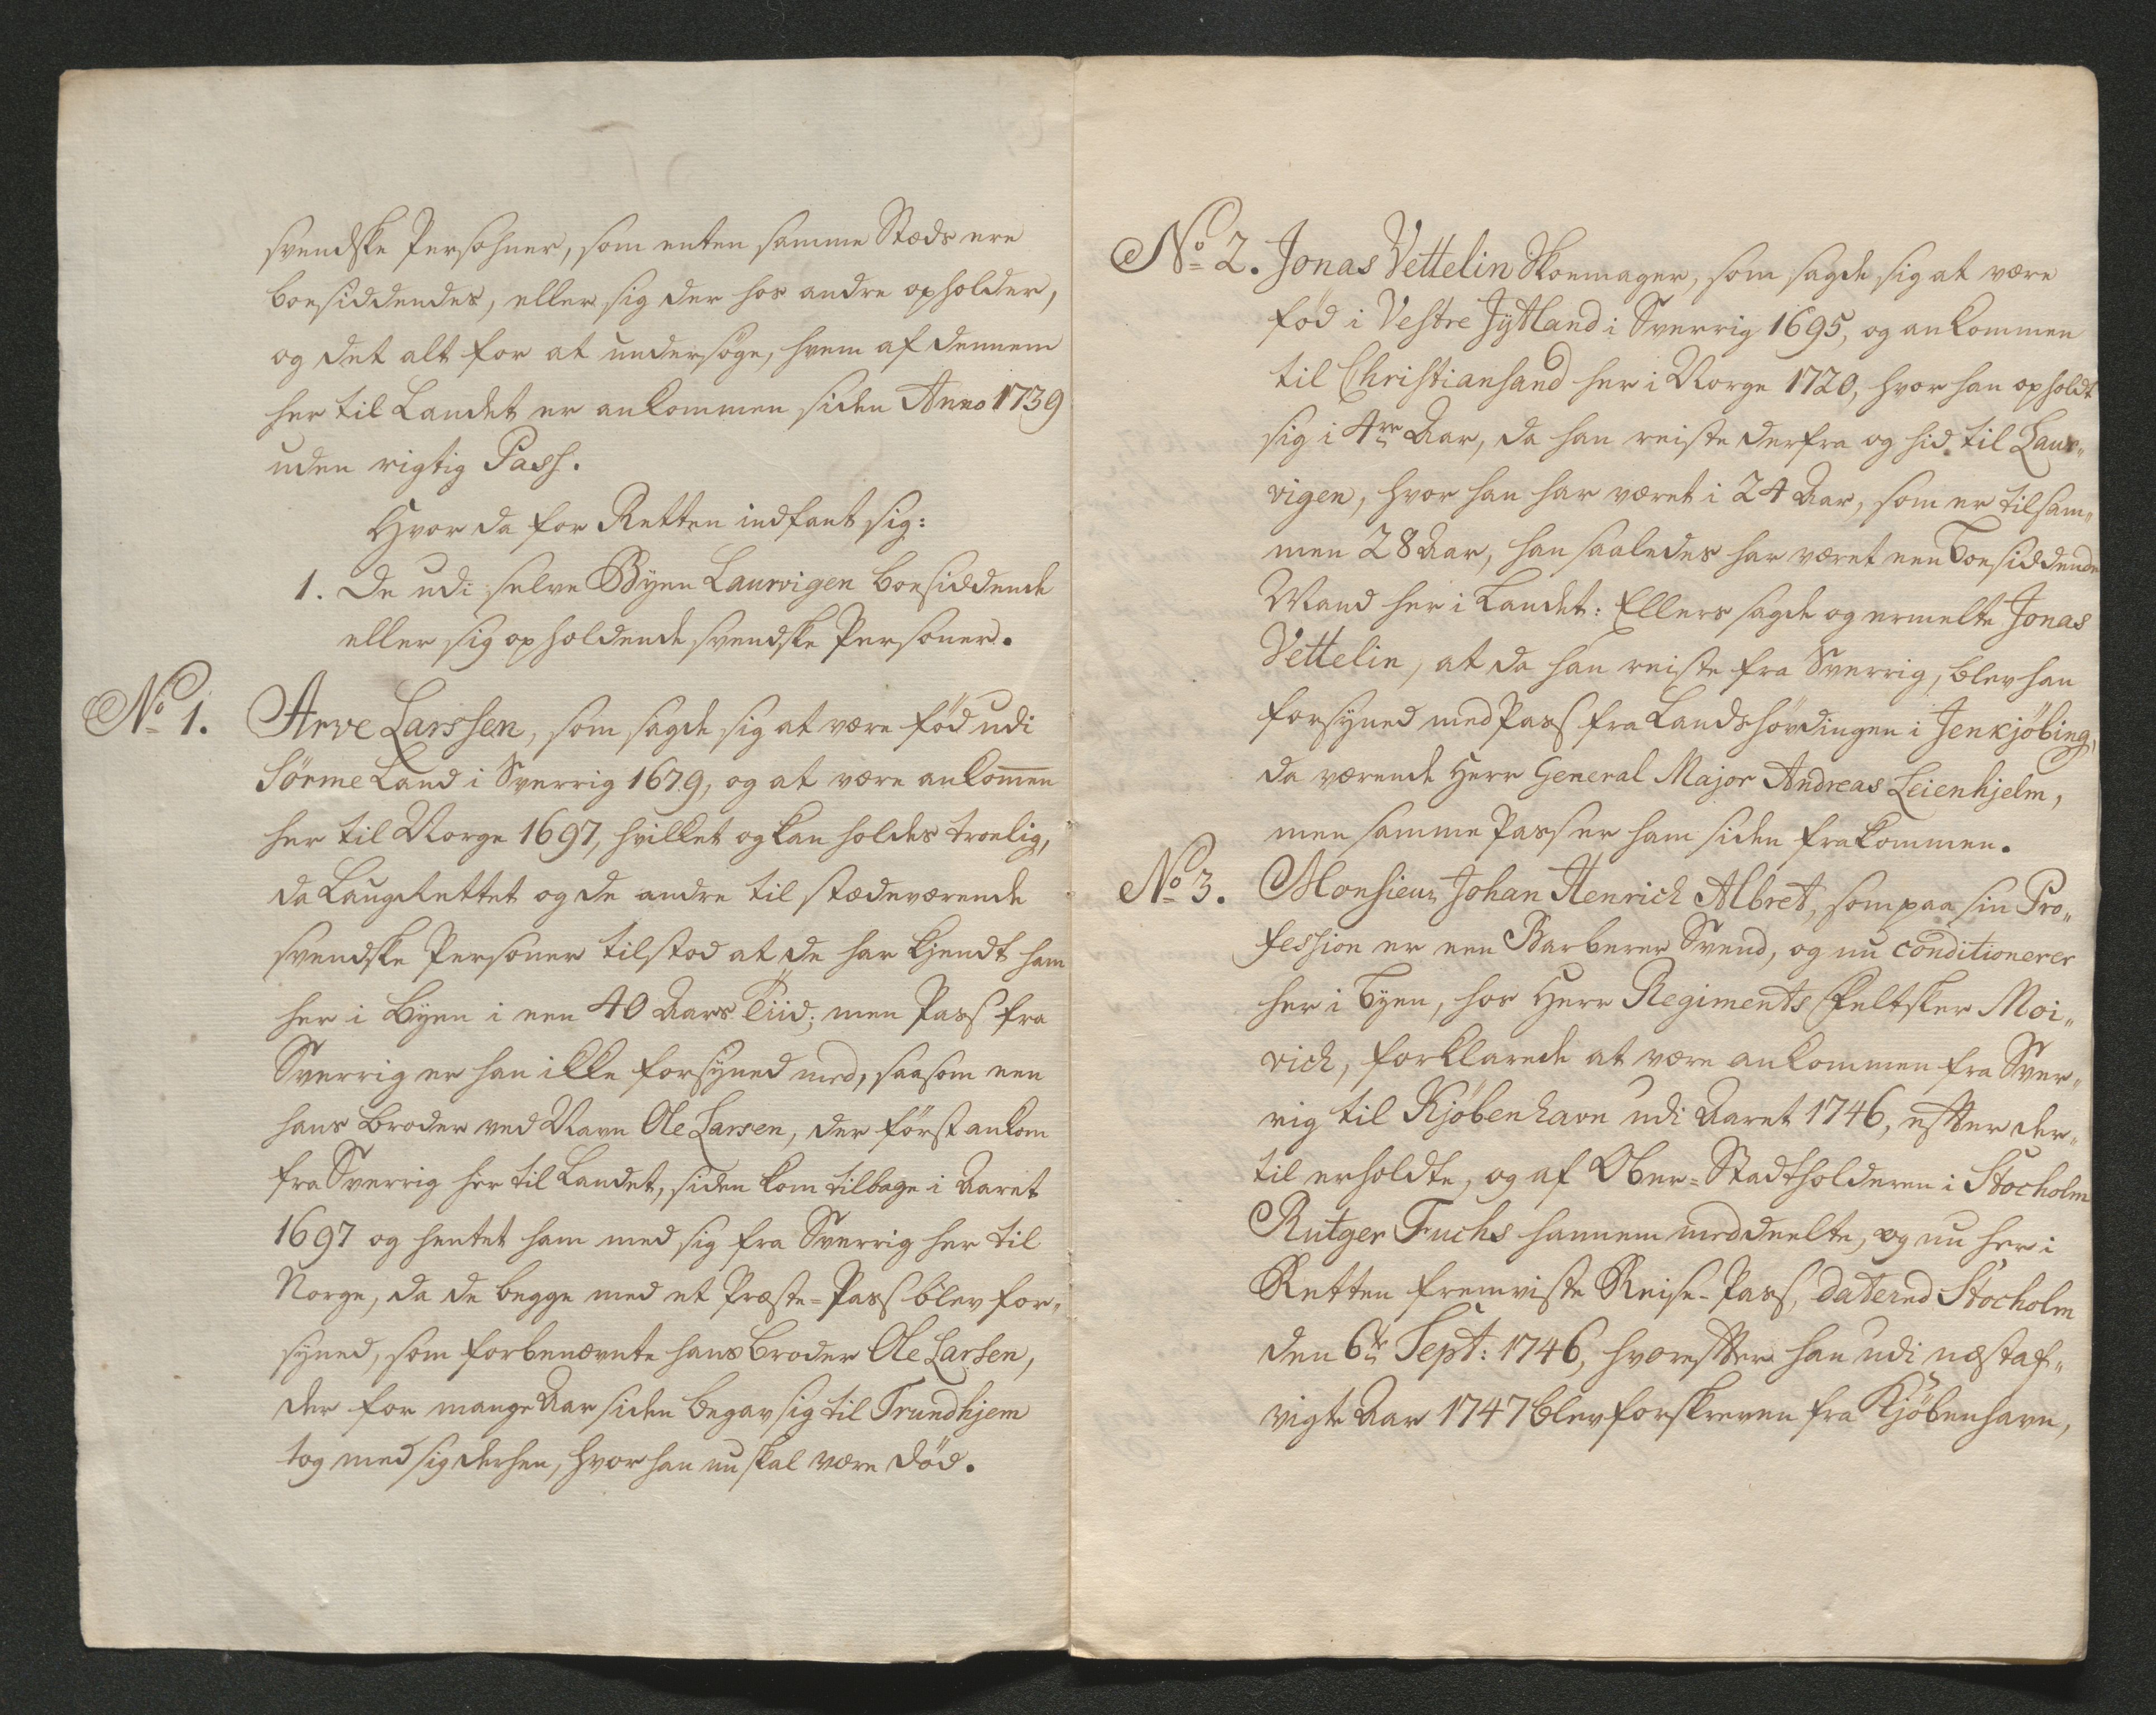 svendske Persohner, som enten samme Stæds ere
boesiddendes, eller sig der hos andre opholder,
og det alt for at undersøge, hvem af dennem
her til Landet er ankommen siden Anno 1739
uden rigtig Pass.
Hvor da for Retten indfant sig:
1. De udi selve Byen Laurvigen boesiddende
eller sig opholdende svendske Personer.
No 1. Arve Larssen, som sagde sig at være fød udi
Sørme Land i Sverrig 1679, og at være ankom̅en
her til Norge 1697, hvilket og kan holdes troelig,
da Laugrettet og de andre til stædeværende
svendske Personer tilstod at de har kjendt ham
her i Byen i een 40 Aars Tiid; men Pass fra
Sverrig er han ikke forsyned med, saasom een
hans Broder ved Navn Ole Larsen, der først ankom
fra Sverrig her til Landet, siden kom tilbage i Aaret
1697 og hentet ham med sig fra Sverrig her til
Norge, da de begge med et Præste-Pass blev for„
syned, som forbenævnte hans Broder Ole Larsen,
der for mange Aar siden begav sig til Trundhjem
tog med sig derhen, hvor han nu skal være død.
No 2. Jonas Vettelin Skoemager, som sagde sig at være
fød i Vestre Jytland i Sverrig 1695, og ankommen
til Christiansand her i Norge 1720, hvor han opholdt
sig i 4re Aar, da han reiste derfra og hid til Laur„
vigen, hvor han har været i 24 Aar, som er tilsam„
men 28 Aar, han saaledes har været een Boesiddende
Mand her i Landet: Ellers sagde og ermelte Jonas
Vettelin, at da han reiste fra Sverrig, blev han
forsyned med Pass fra Landshøvdingen i Jenkjøbing,
da værende Herr General Major Andreas Leienhjelm,
men samme Pass er ham siden frakommen.
No 3. Monsieur Johan Henrich Albret, som paa sin Pro„
fession er een Barberer Svend, og nu conditionerer
her i Byen, hos Herr Regiments Feltsker Moi„
rich, forklarede at være ankommen fra Sver„
rig til Kjøbenhavn udi Aaret 1746, efter der„
til erholdte, og af Ober-Stadtholderen i Stocholm
Rutger Fuchs hannem meddeelte, og nu her i
Retten fremviste Reise-Pass, datered Stocholm
den 6te Sept: 1746, hvorefter han udi næstaf„
vigte Aar 1747 blev forskreven fra Kjøbenhavn,